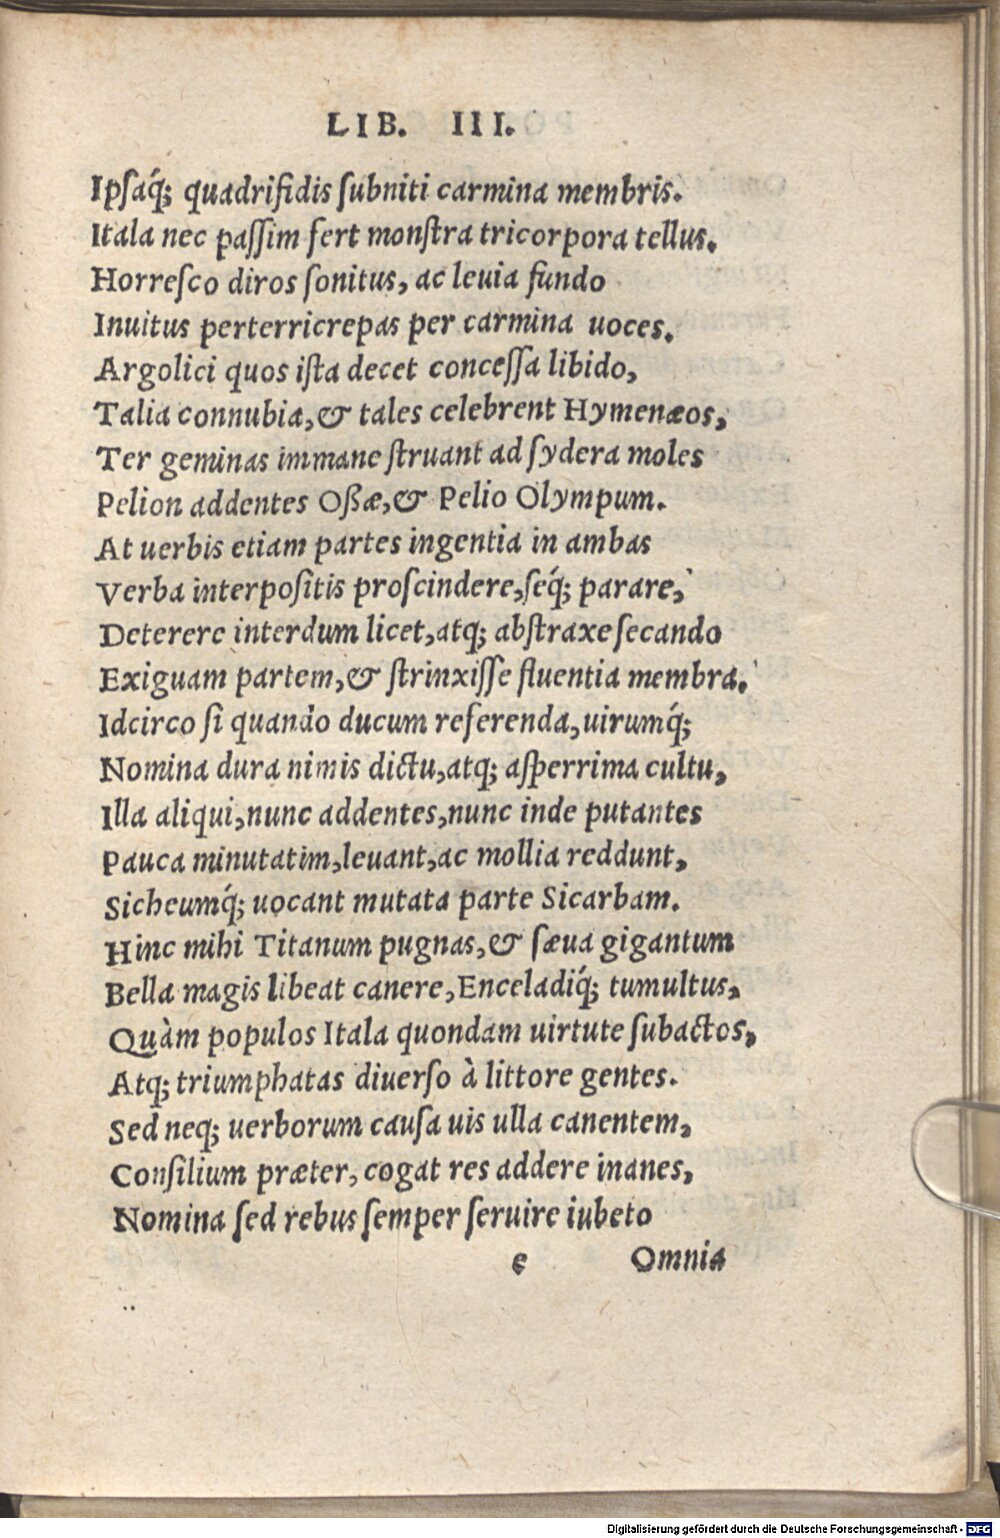 LIB. III.
Ipsaq́; quadrifidis ſubniti carmina membris.
Itala nec paſſim fert monſtra tricorpora tellus.
Horreſco diros ſonitus, ac leuia fundo
Inuitus perterricrepas per carmina uoces.
Argolici quos iſta decet conceſſa libido,
Talia connubia, & tales celebrent Hymenæos,
Ter geminas immane ſtruant ad ſydera moles
Pelion addentes Oßæ, & Pelio Olympum.
At uerbis etiam partes ingentia in ambas
Verba interpoſitis proſcindere, ſeq́; parare,
Deterere interdum licet, atq; abſtraxe ſecando
Exiguam partem, & ſtrinxiſſe fluentia membra.
Idcirco ſi quando ducum referenda, uirumq́;
Nomina dura nimis dictu, atq; aſperrima cultu,
Illa aliqui, nunc addentes, nunc inde putantes
Pauca minutatim, leuant, ac mollia reddunt,
Sicheumq́; uocant mutata parte Sicarbam.
Hinc mihi Titanum pugnas, & ſæua gigantum
Bella magis libeat canere, Enceladiq́; tumultus,
Quàm populos Itala quondam uirtute ſubactos,
Atq; triumphatas diuerſo à littore gentes.
Sed neq; uerborum cauſa uis ulla canentem,
Conſilium præter, cogat res addere inanes,
Nomina ſed rebus ſemper ſeruire iubeto
e Omnia
Digitalisierung gefördert durch die Deutsche Forschungsgemeinschaft - DFG